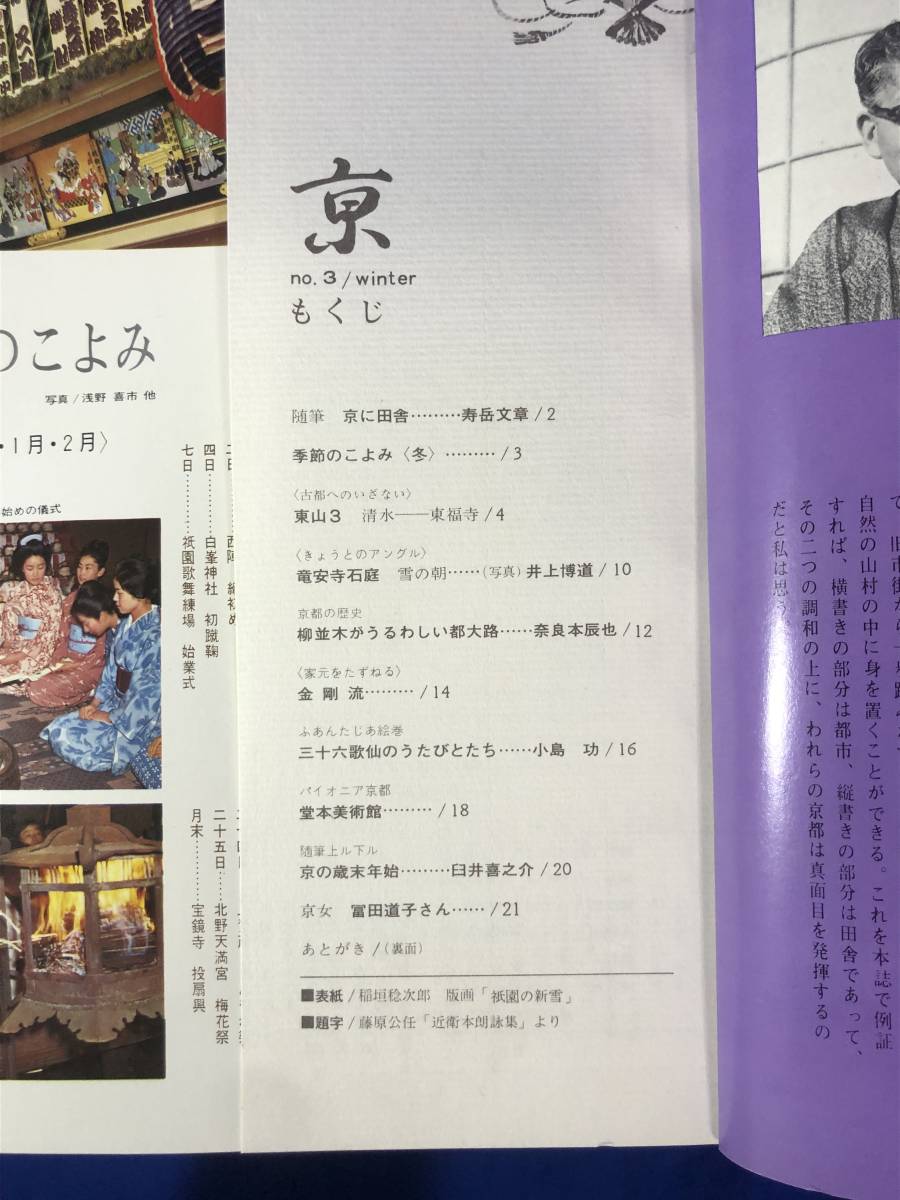 京
no. 3 / winter
もくじ
随筆 京に田舎………寿岳文章 / 2
季節のこよみ〈冬〉……… / 3
〈古都へのいざない〉
東山3 清水――東福寺 / 4
〈きょうとのアングル〉
竜安寺石庭 雪の朝……(写真)井上博道 / 10
京都の歴史
柳並木がうるわしい都大路……奈良本辰也 / 12
〈家元をたずねる〉
金剛流……… / 14
ふあんたじあ絵巻
三十六歌仙のうたびとたち……小島 功 / 16
パイオニア京都
堂本美術館……… / 18
随筆上ル下ル
京の歳末年始………臼井喜之介 / 20
京女 冨田道子さん…… / 21
あとがき /(裏面)
■表紙 / 稲垣稔次郎 版画「祇園の新雪」
■題字 / 藤原公任「近衛本朗詠集」より
のこよみ
写真 / 浅野 喜市 他
・1月・2月〉
始めの儀式
四日………白峯神社 初蹴鞠
七日………祇園歌舞練場 始業式
二十五日……北野天満宮 梅花祭
月末………宝鏡寺 投扇興
自然の山村の中に身を置くことができる。これを本誌で例証
すれば、横書きの部分は都市、縦書きの部分は田舎であって、
その二つの調和の上に、われらの京都は真面目を発揮するの
だと私は思う